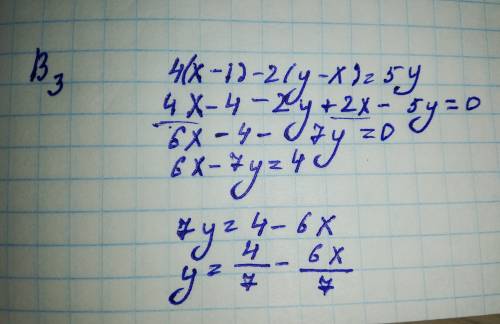 B3
4(x-1)-2(y-x)=5y
4x-4-2y+2x-5y=0
6x-4-7y=0
6x-7y=4
7y=4-6x
y=4/7-6x/7